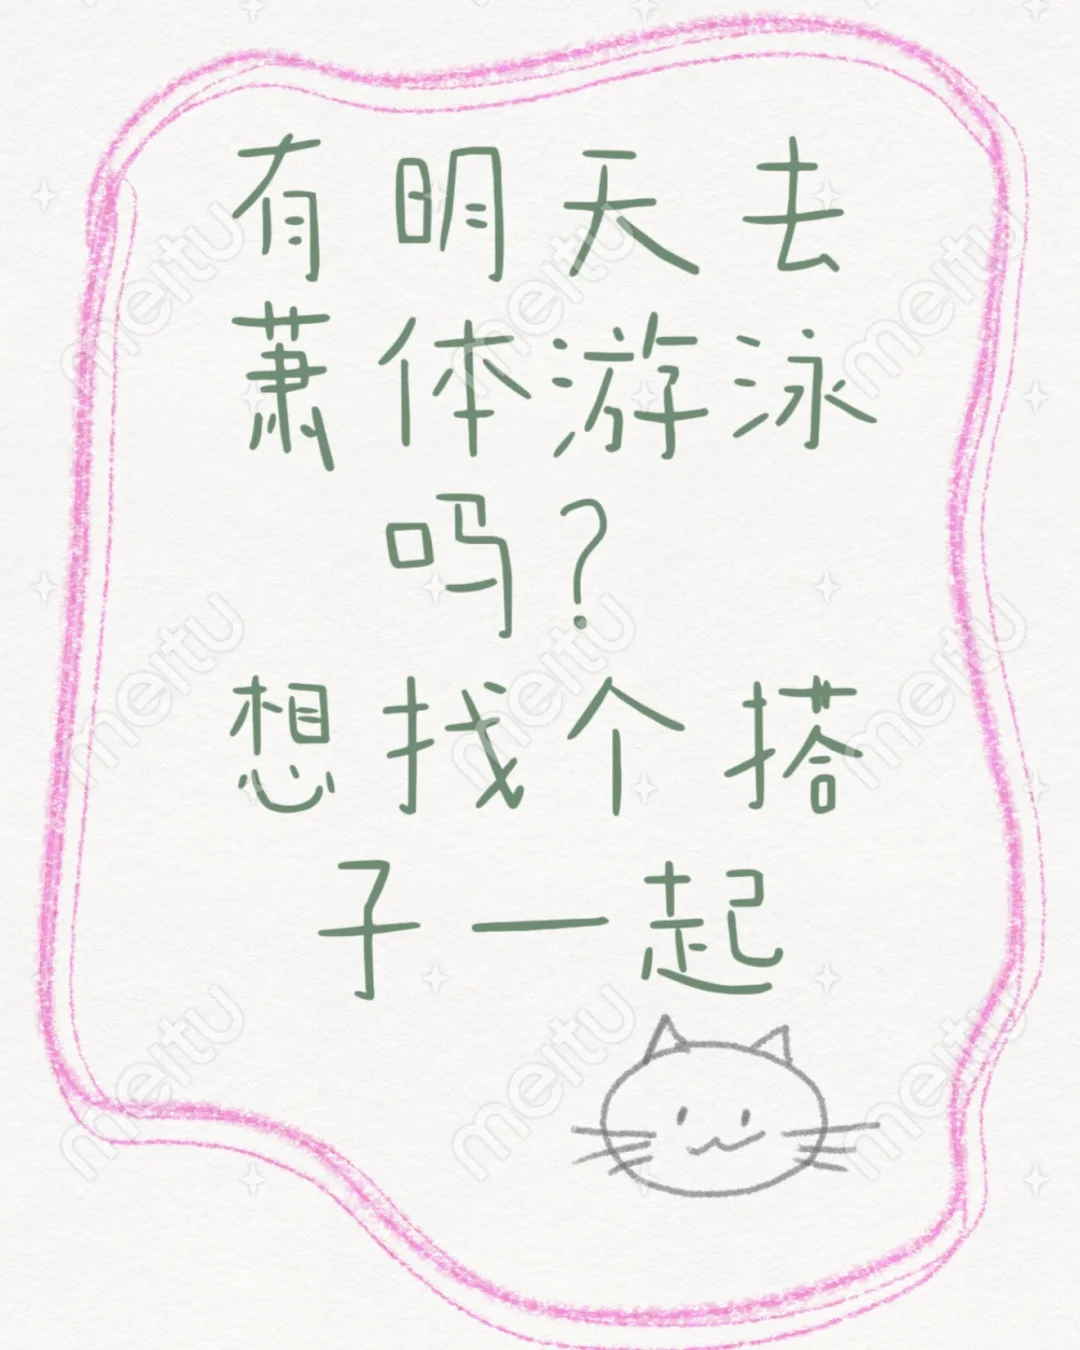 有明天去
萧体游泳
吗？
想找个搭
子一起
meitu
meitu
meitu
meitu
meitu
meitu
meitu
meitu
meitu